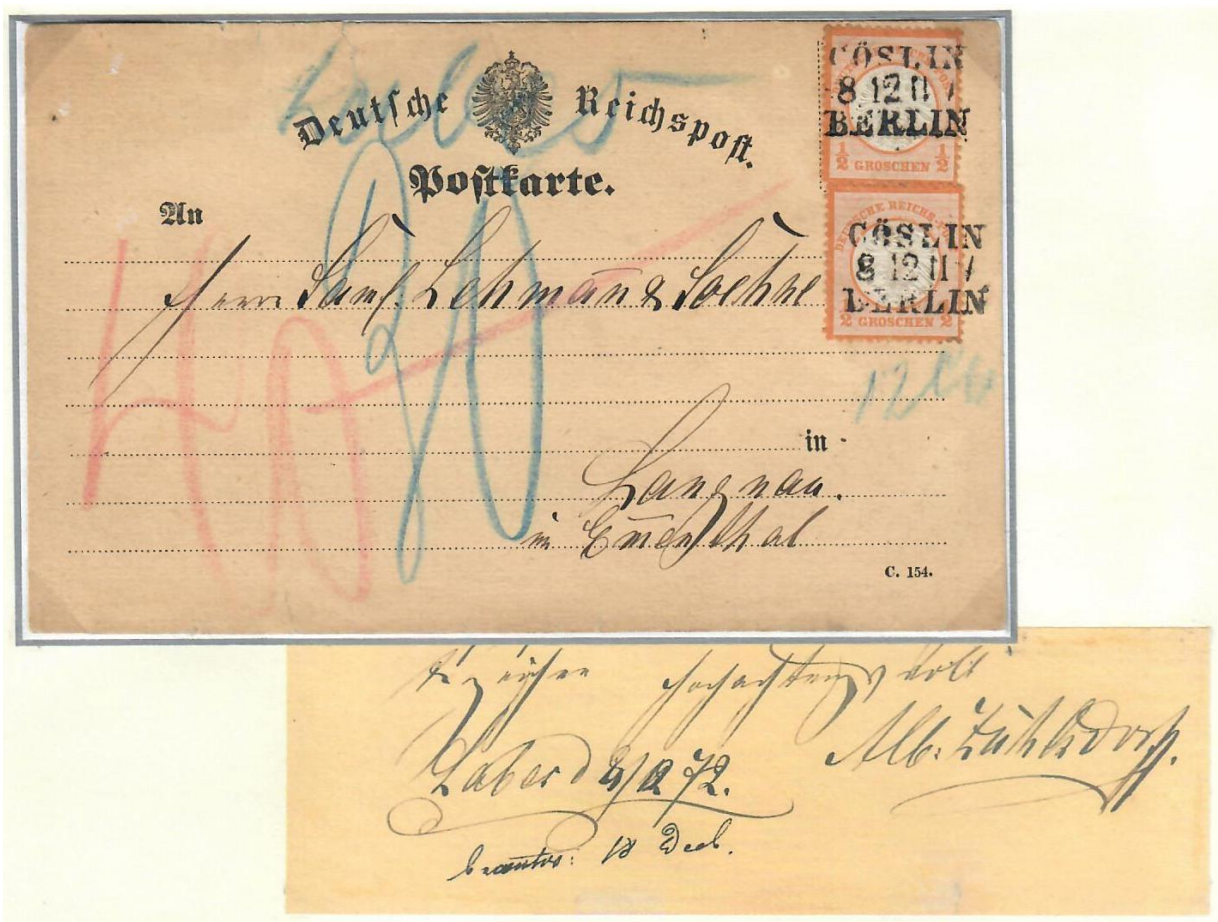 Labes
Deutsche Reichspost.
Postkarte.
CÖSLIN
8 12 II
BERLIN
½ GROSCHEN ½
DEUTSCHE REICHS-
CÖSLIN
8 12 II
BERLIN
½ GROSCHEN ½
An
Herrn Saml. Lehmañ & Soehne
40
20
12
in
Langnau.
im Em̃enthal
C. 154.
hochachtungsvoll
Labes d 72.
Alb: Zühlsdorff.
18 Decb.